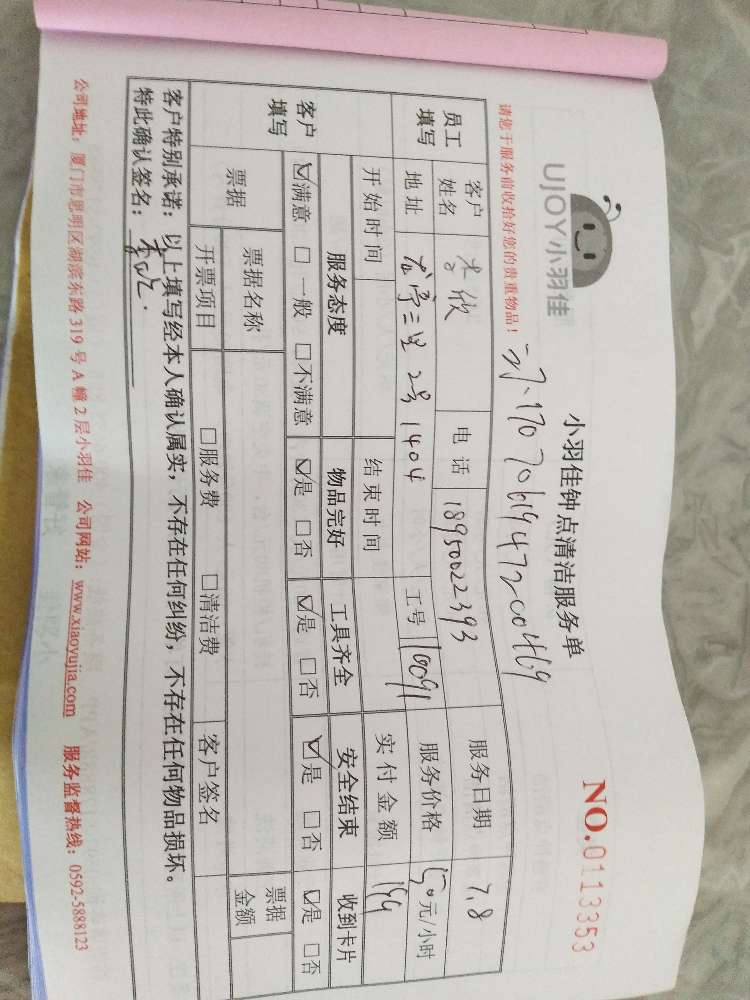 UJOY小羽佳
小羽佳钟点清洁服务单
NO.0113353
请您于服务前收拾好您的贵重物品！
1707061947200469
员工填写 客户姓名 李欣 电话 18950022393 服务日期 7.8
地址 2号1404 工号 10091 服务价格 50元/小时
开始时间 结束时间 实付金额 199
客户填写 服务态度 物品完好 工具齐全 安全结束 收到卡片
☑满意 □一般 □不满意 ☑是 □否 ☑是 □否 ☑是 □否 ☑是 □否
票据 票据名称 票据金额
开票项目 □服务费 □清洁费 客户签名
客户特别承诺：以上填写经本人确认属实，不存在任何纠纷，不存在任何物品损坏。
特此确认签名：李欣.
公司地址：厦门市思明区湖滨东路319号A幢2层小羽佳 公司网站：www.xiaoyujia.com 服务监督热线：0592-5888123